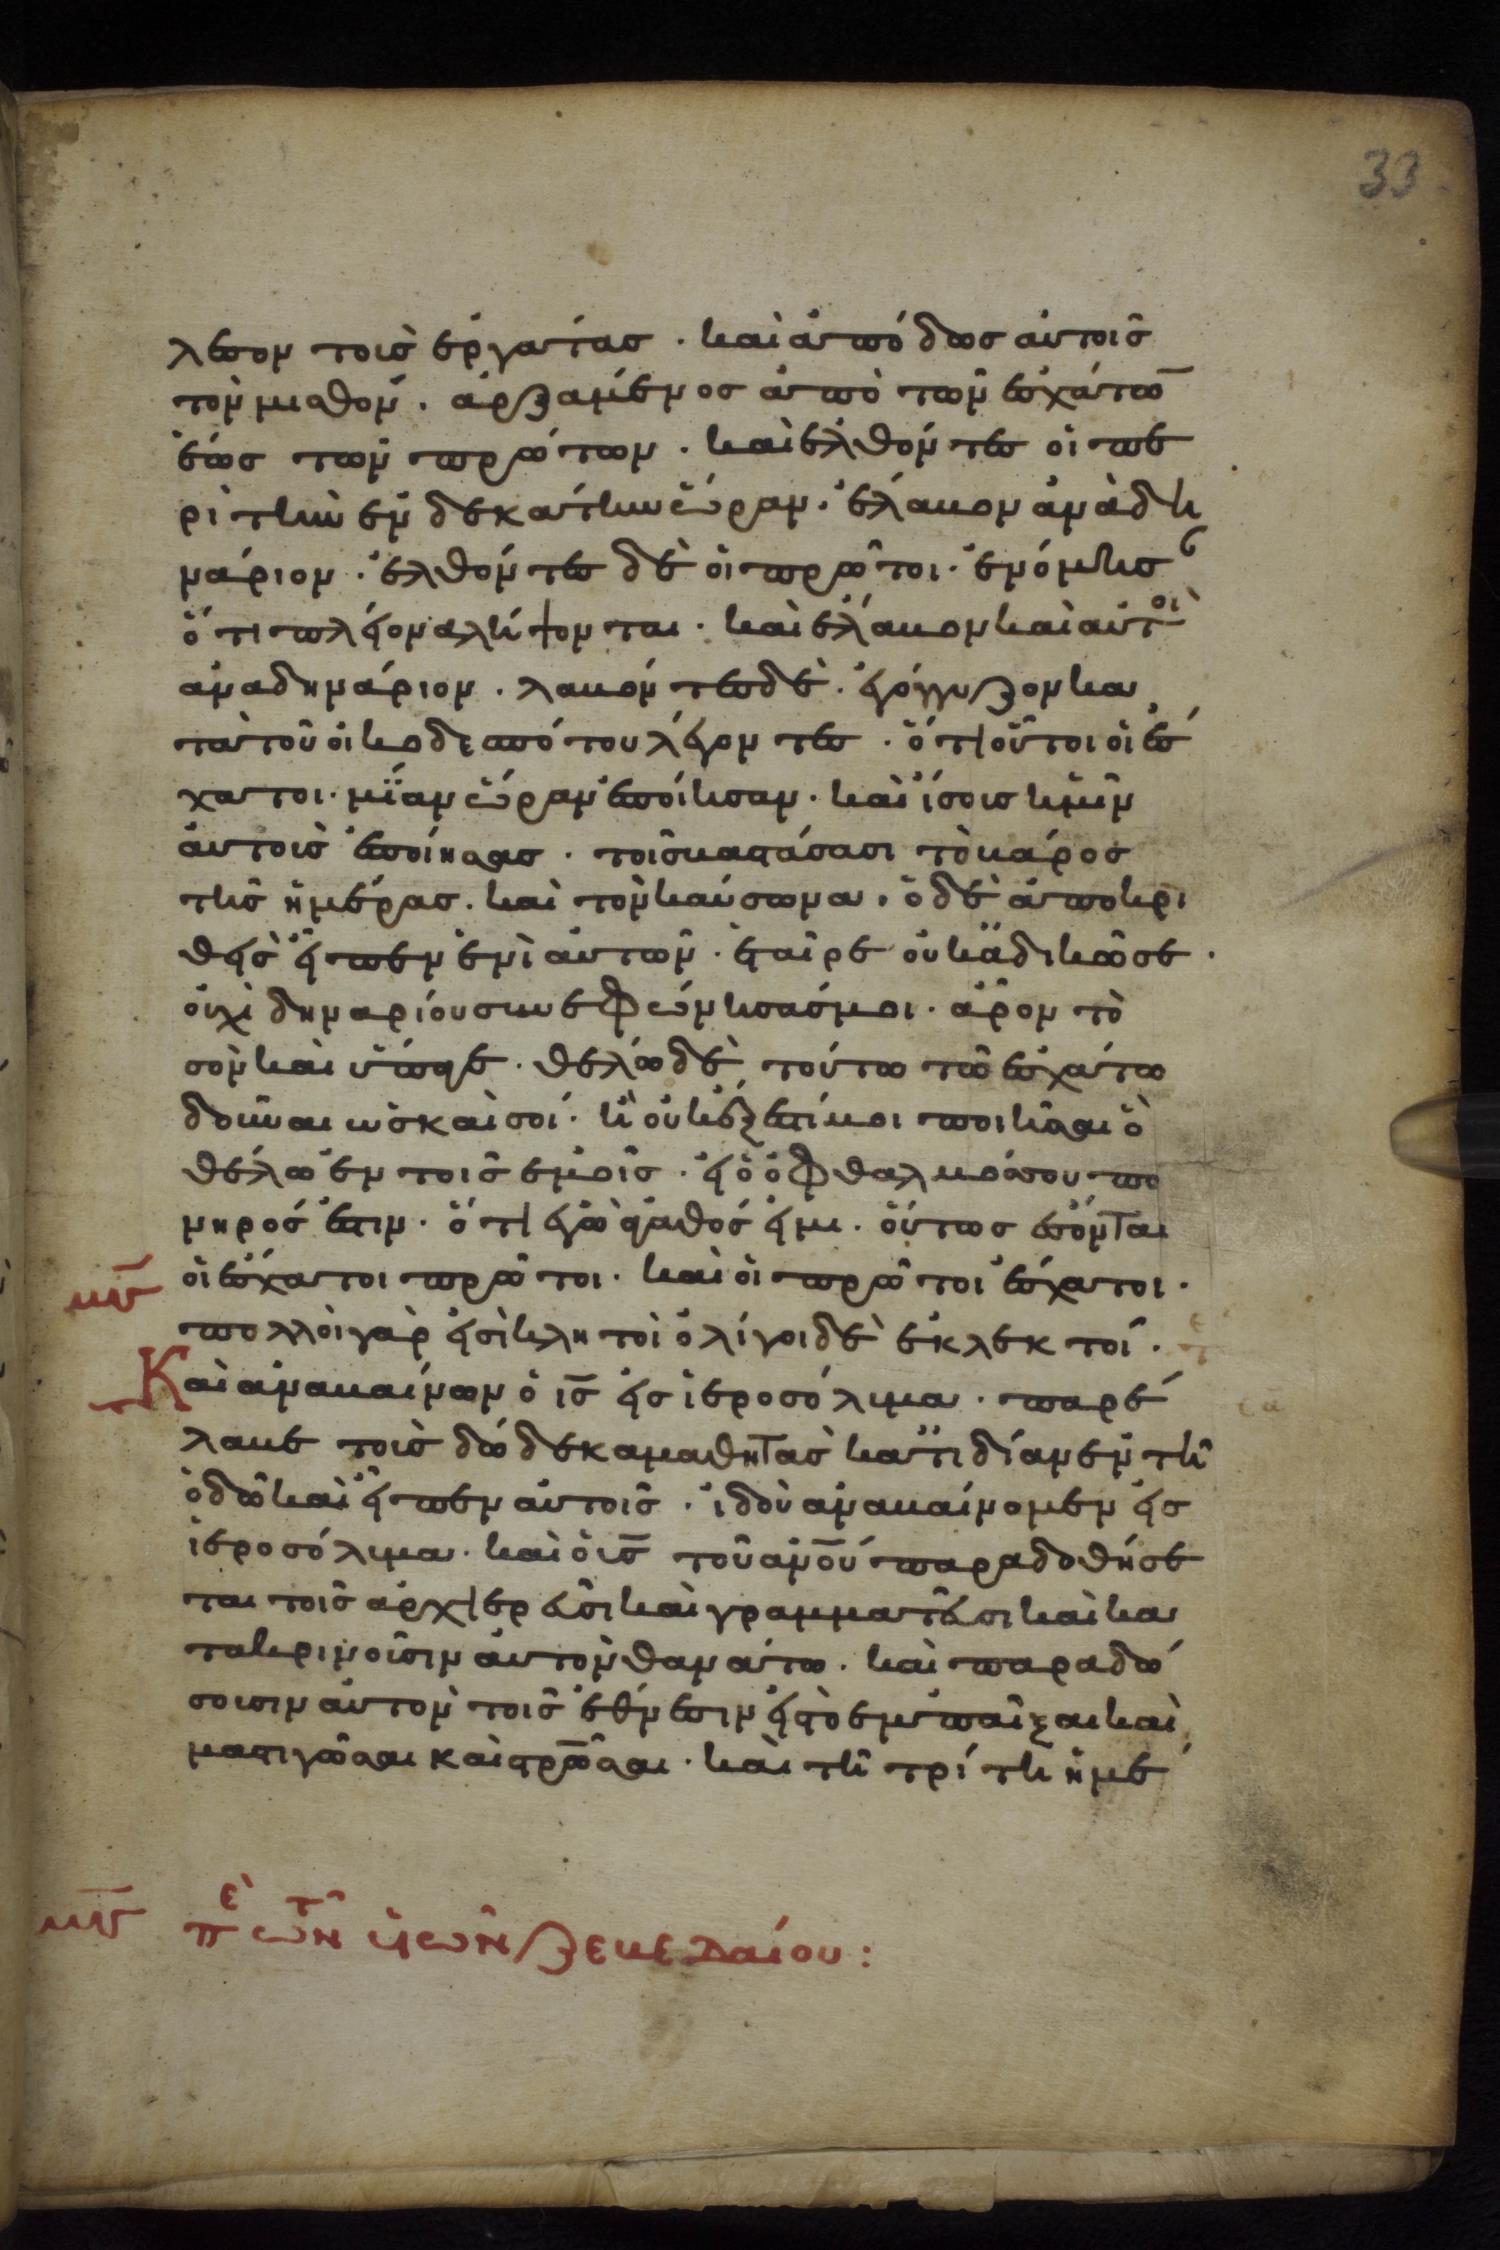 33
λεσον τοὺς ἐργάτας · καὶ ἀπόδος αὐτοῖς
τὸν μισθόν · ἀρξάμενος ἀπὸ τῶν ἐσχάτω̄
ἕως τῶν πρώτων · καὶ ἐλθόντες οἱ πε
ρὶ τὴν ἑνδεκάτην ὥραν · ἔλαβον ἀνὰ δη
νάριον · ἐλθόντες δὲ οἱ πρῶτοι · ἐνόμησα
ὅτι πλείονα λήψονται · καὶ ἔλαβον καὶ αὐτοὶ
ἀνὰ δηνάριον · λαβόντες δὲ · ἐγόγγυζον κα
τὰ τοῦ οἰκοδεσπότου λέγοντες · ὅτι οὗτοι οἱ ἔσ
χατοι · μίαν ὥραν ἐποίησαν · καὶ ἴσους ἡμῖν
αὐτοὺς ἐποίησας · τοῖς βαστάσασι τὸ βάρος
τῆς ἡμέρας · καὶ τὸν καύσωνα · ὁ δὲ ἀποκρι
θεὶς εἶπεν ἑνὶ αὐτῶν · ἑταῖρε οὐκ ἀδικῶ σε ·
οὐχὶ δηναρίου συνεφώνησάς μοι · ἆρον τὸ
σὸν καὶ ὕπαγε · θέλω δὲ τούτω τῶ ἐσχάτω
δοῦναι ὡς καὶ σοί · ἢ οὐκ ἔξεστί μοι ποιῆσαι ὃ
θέλω ἐν τοῖς ἐμοῖς · εἰ ὁ ὀφθαλμός σου πο
νηρός ἐστιν · ὅτι ἐγὼ ἀγαθός εἰμι · οὕτως ἔσονται
οἱ ἔσχατοι πρῶτοι · καὶ οἱ πρῶτοι ἔσχατοι ·
πολλοὶ γὰρ εἰσὶ κλητοὶ ὀλίγοι δὲ ἐκλεκτοί ·
Καὶ ἀναβαίνων ὁ ι̅ς̅ εἰς ἱεροσόλυμα · παρέ
λαβε τοὺς δώδεκα μαθητὰς κατ ἰδίαν ἐν τῆ
ὁδῶ καὶ εἶπεν αὐτοῖς · ἰδοὺ ἀναβαίνομεν εἰς
ἱεροσόλυμα · καὶ ὁ υ̅ς̅ τοῦ α̅ν̅ο̅υ̅ παραδοθήσε
ται τοῖς ἀρχιερεῦσι καὶ γραμματεῦσι καὶ κα
τακρινοῦσιν αὐτὸν θανάτω · καὶ παραδώ
σουσιν αὐτὸν τοῖς ἔθνεσιν εἰς τὸ ἐμπαῖξαι καὶ
μαστιγῶσαι καὶ στρω̅σαι · καὶ τῆ τρίτη ἡμέ
πε τῶν υἱῶν ζεβεδαίου :